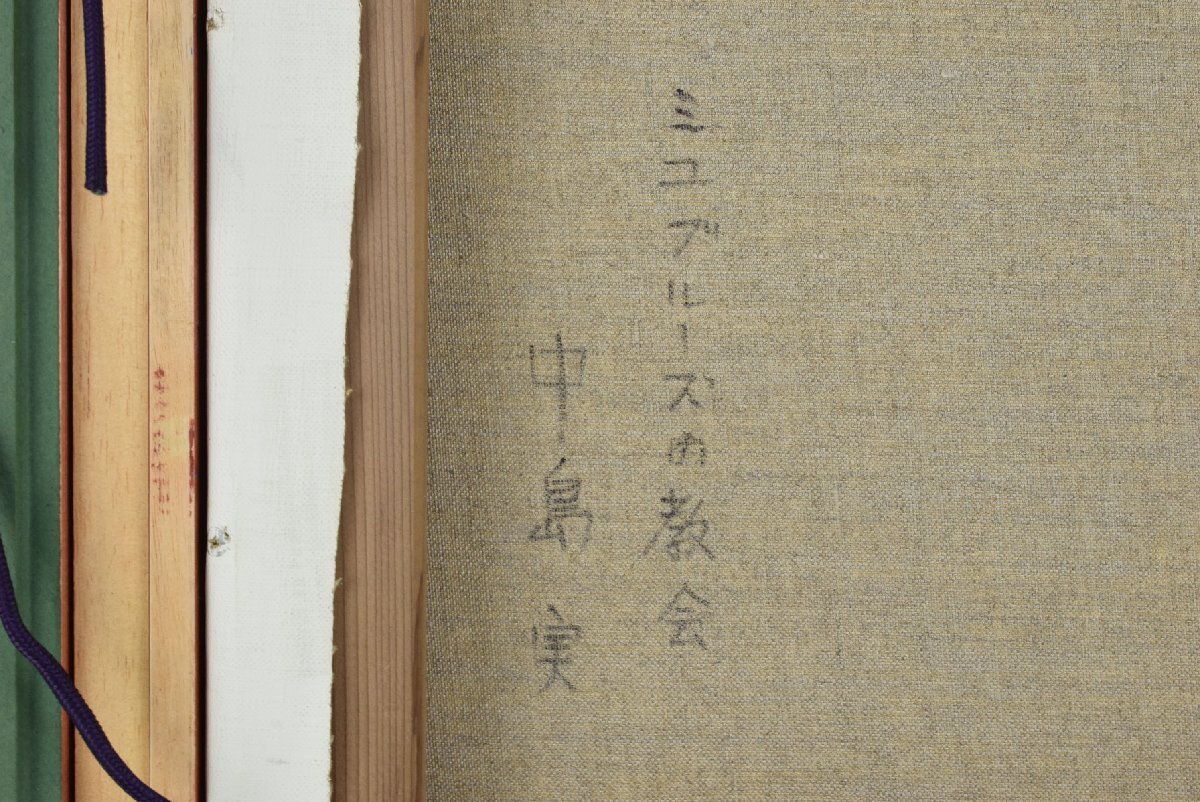 ミコブルーズの教会
中島実